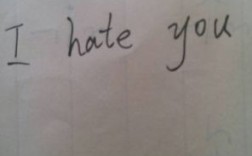 I hate you